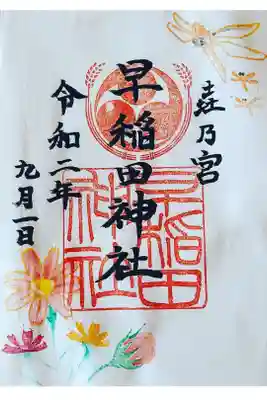 㐂乃宮
早稲田神社
令和二年
九月一日
早稲田
神社